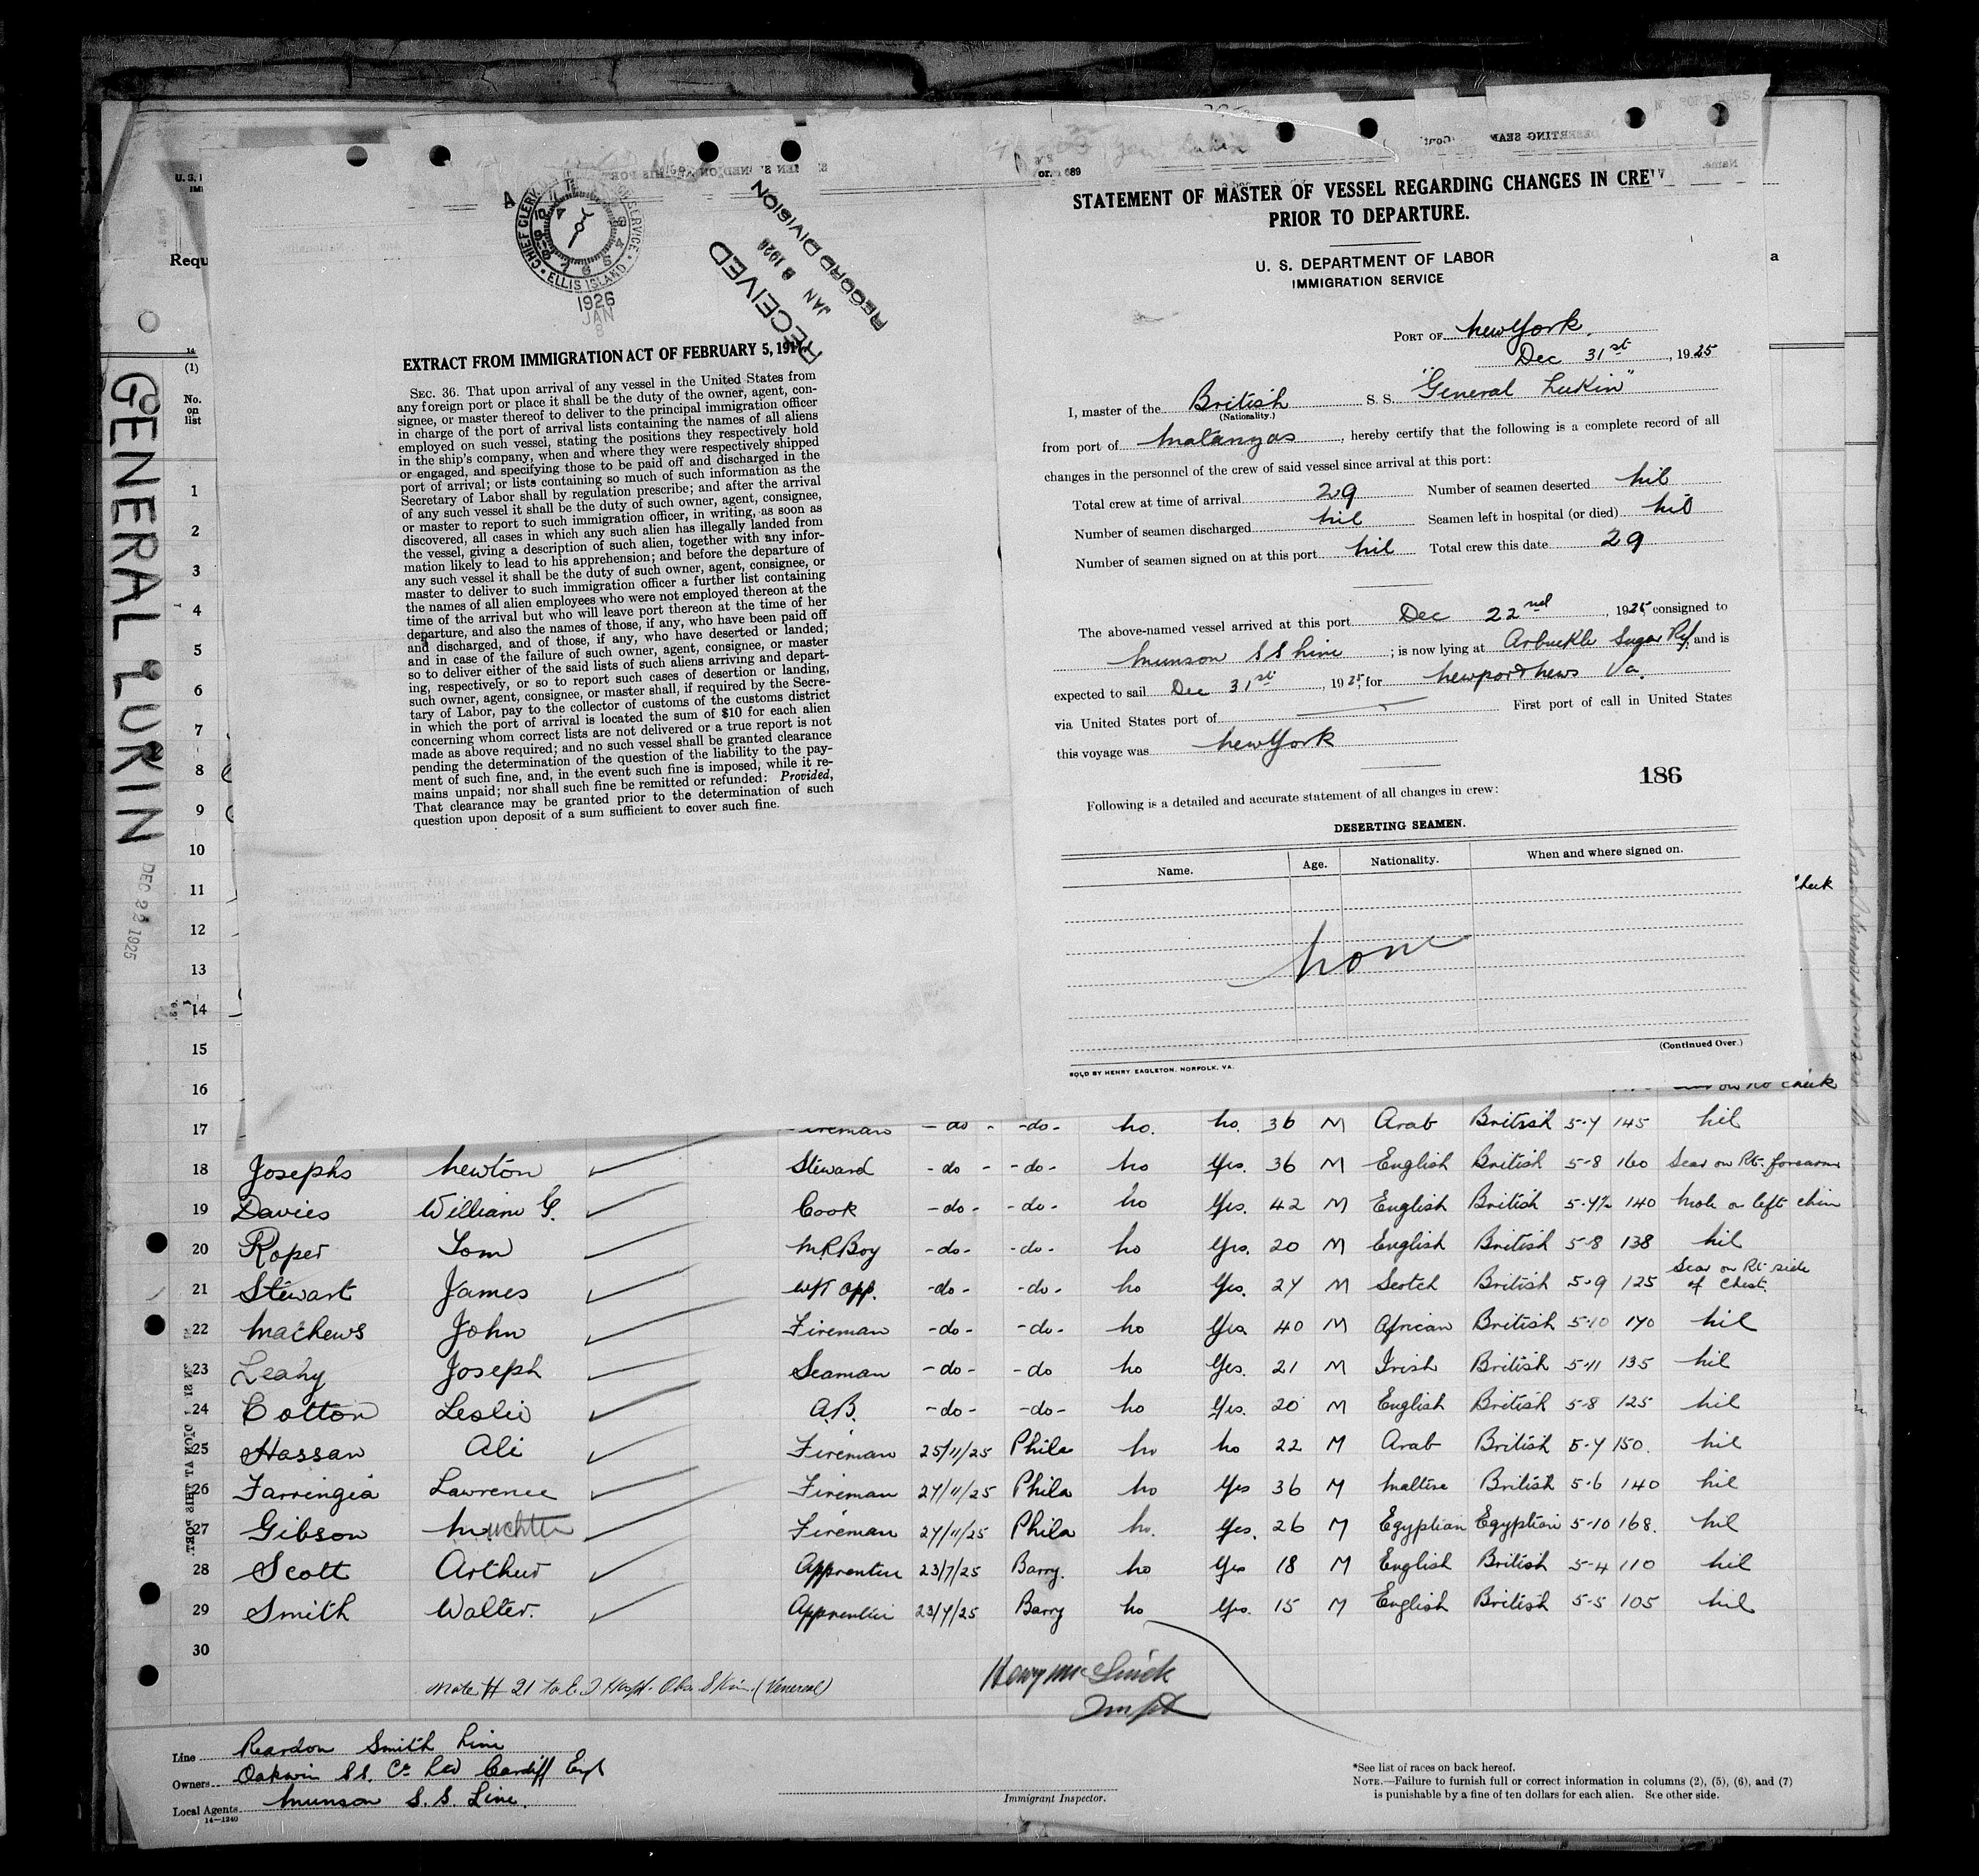 GENERAL LUKIN
DEC 22 1925
U. S.
Requ
14
(1)
No.
on
list
CHIEF CLERK
ELLIS ISLAND
1926
JAN
8
RECEIVED
JAN 8 1926
RECORD DIVISION
EXTRACT FROM IMMIGRATION ACT OF FEBRUARY 5, 1917.
SEC. 36. That upon arrival of any vessel in the United States from
any foreign port or place it shall be the duty of the owner, agent, con-
signee, or master thereof to deliver to the principal immigration officer
in charge of the port of arrival lists containing the names of all aliens
employed on such vessel, stating the positions they respectively hold
in the ship's company, when and where they were respectively shipped
or engaged, and specifying those to be paid off and discharged in the
port of arrival; or lists containing so much of such information as the
Secretary of Labor shall by regulation prescribe; and after the arrival
of any such vessel it shall be the duty of such owner, agent, consignee,
or master to report to such immigration officer, in writing, as soon as
discovered, all cases in which any such alien has illegally landed from
the vessel, giving a description of such alien, together with any infor-
mation likely to lead to his apprehension; and before the departure of
any such vessel it shall be the duty of such owner, agent, consignee, or
master to deliver to such immigration officer a further list containing
the names of all alien employees who were not employed thereon at the
time of the arrival but who will leave port thereon at the time of her
departure, and also the names of those, if any, who have been paid off
and discharged, and of those, if any, who have deserted or landed;
and in case of the failure of such owner, agent, consignee, or master
so to deliver either of the said lists of such aliens arriving and depart-
ing, respectively, or so to report such cases of desertion or landing,
such owner, agent, consignee, or master shall, if required by the Secre-
tary of Labor, pay to the collector of customs of the customs district
in which the port of arrival is located the sum of $10 for each alien
concerning whom correct lists are not delivered or a true report is not
made as above required; and no such vessel shall be granted clearance
pending the determination of the question of the liability to the pay-
ment of such fine, and, in the event such fine is imposed, while it re-
mains unpaid; nor shall such fine be remitted or refunded: Provided,
That clearance may be granted prior to the determination of such
question upon deposit of a sum sufficient to cover such fine.
689
STATEMENT OF MASTER OF VESSEL REGARDING CHANGES IN CREW
PRIOR TO DEPARTURE.
U. S. DEPARTMENT OF LABOR
IMMIGRATION SERVICE
PORT OF New York.
Dec 31st, 1925
I, master of the British S. S. "General Lukin"
(Nationality.)
from port of Matanzas, hereby certify that the following is a complete record of all
changes in the personnel of the crew of said vessel since arrival at this port:
Total crew at time of arrival 29 Number of seamen deserted nil
Number of seamen discharged nil Seamen left in hospital (or died) nil
Number of seamen signed on at this port nil Total crew this date 29
The above-named vessel arrived at this port Dec 22nd, 1925 consigned to
Munson S S Line; is now lying at Arbuckle Sugar Rf, and is
expected to sail Dec 31st, 1925 for Newport News Va.
via United States port of First port of call in United States
this voyage was New York
186
Following is a detailed and accurate statement of all changes in crew:
DESERTING SEAMEN.
Name. Age. Nationality. When and where signed on.
None
(Continued Over.)
SOLD BY HENRY EAGLETON, NORFOLK, VA.
1
2
3
4
5
6
7
8
9
10
11 cheek
12
13
14
15
16 cheek
17 Fireman -do- -do- No. No. 36 M Arab British 5-7 145 Nil
18 Josephs Newton Steward -do- -do- No Yes. 36 M English British 5-8 160 Scar on Rt. forearm
19 Davies William G. Cook -do- -do- No Yes. 42 M English British 5-7½ 140 Mole on left chin
20 Roper Tom M.R.Boy -do- -do- No Yes. 20 M English British 5-8 138 Nil
21 Stewart James W/T Opp. -do- -do- No Yes. 24 M Scotch British 5-9 125 Scar on Rt side of Chest.
22 Mathews John Fireman -do- -do- No Yes 40 M African British 5-10 170 Nil
23 Leahy Joseph Seaman -do- -do No Yes. 21 M Irish British 5-11 135 Nil
24 Cotton Leslie A.B. -do- -do- No Yes. 20 M English British 5-8 125 Nil
25 Hassan Ali Fireman 25/11/25 Phila No No 22 M Arab British 5-7 150. Nil
26 Farringia Lawrence Fireman 27/11/25 Phila No Yes 36 M Maltese British 5-6 140 Nil
27 Gibson Fireman 27/11/25 Phila No. Yes. 26 M Egyptian Egyptian 5-10 168. Nil
28 Scott Arthur Apprentice 23/7/25 Barry. No Yes 18 M English British 5-4 110 Nil
29 Smith Walter. Apprentice 23/7/25 Barry No Yes. 15 M English British 5-5 105 Nil
30
Note # 21 to Hospt. Obs. Skin (Venereal)
Line Reardon Smith Line
Owners Oakwin S.S. Co Ltd Cardiff Engl
Local Agents Munson S. S. Line.
14-1240
Immigrant Inspector.
*See list of races on back hereof.
NOTE.—Failure to furnish full or correct information in columns (2), (5), (6), and (7)
is punishable by a fine of ten dollars for each alien. See other side.